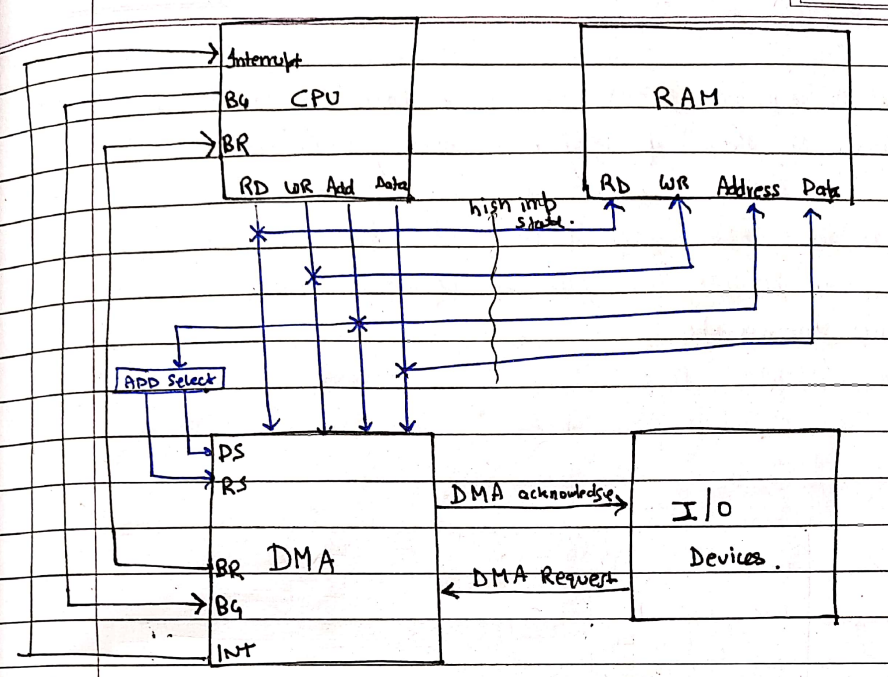 Interrupt
BG CPU
BR
RD WR Add Data
RAM
RD WR Address Data
high imp
state.
ADD Select
DS
RS
DMA
BR
BG
INT
DMA acknowledge
DMA Request
I/O
Devices.